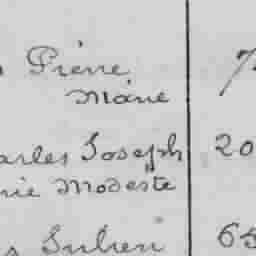 Pierre 7
Marie
arles Joseph 20
rie Modeste
Julien 65